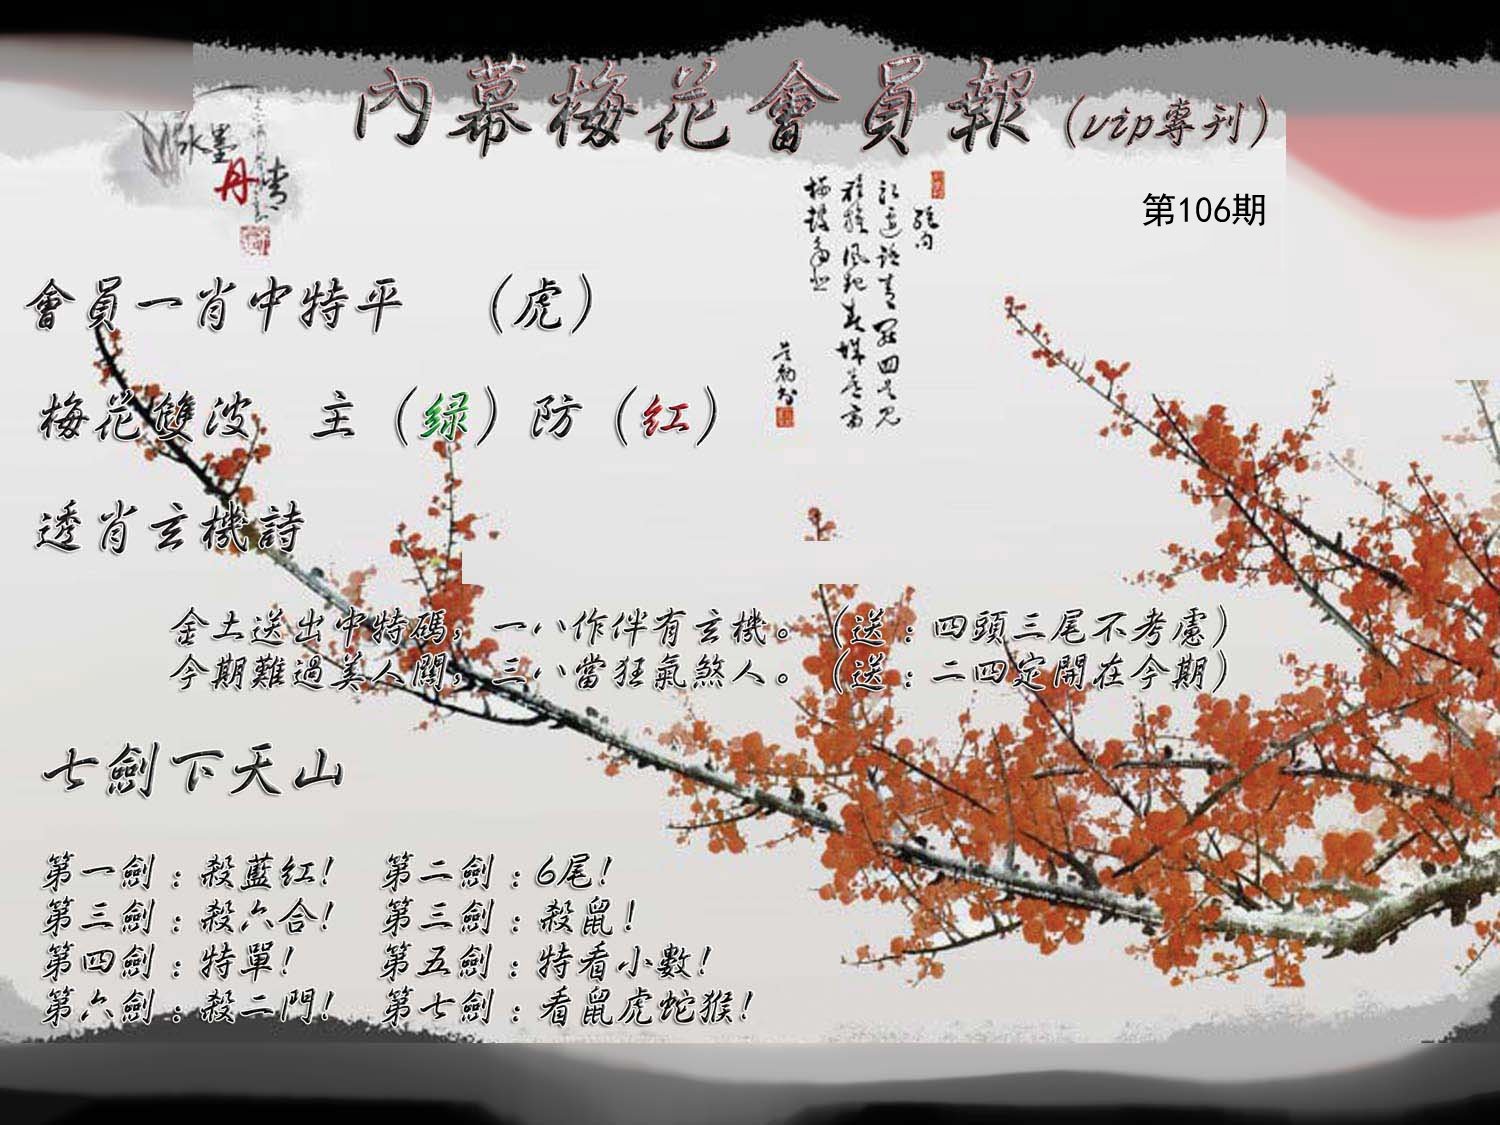 內幕梅花會員報（vip專刊）
水墨
丹青
第106期
會員一肖中特平 （虎）
梅花雙波 主（绿）防（红）
透肖玄機詩
金土送出中特碼，一八作伴有玄機。（送：四頭三尾不考慮）
今期難過美人關，三八當狂氣煞人。（送：二四定開在今期）
七劍下天山
第一劍：殺藍红！ 第二劍：6尾！
第三劍：殺六合！ 第三劍：殺鼠！
第四劍：特單！ 第五劍：特看小數！
第六劍：殺二門！ 第七劍：看鼠虎蛇猴！